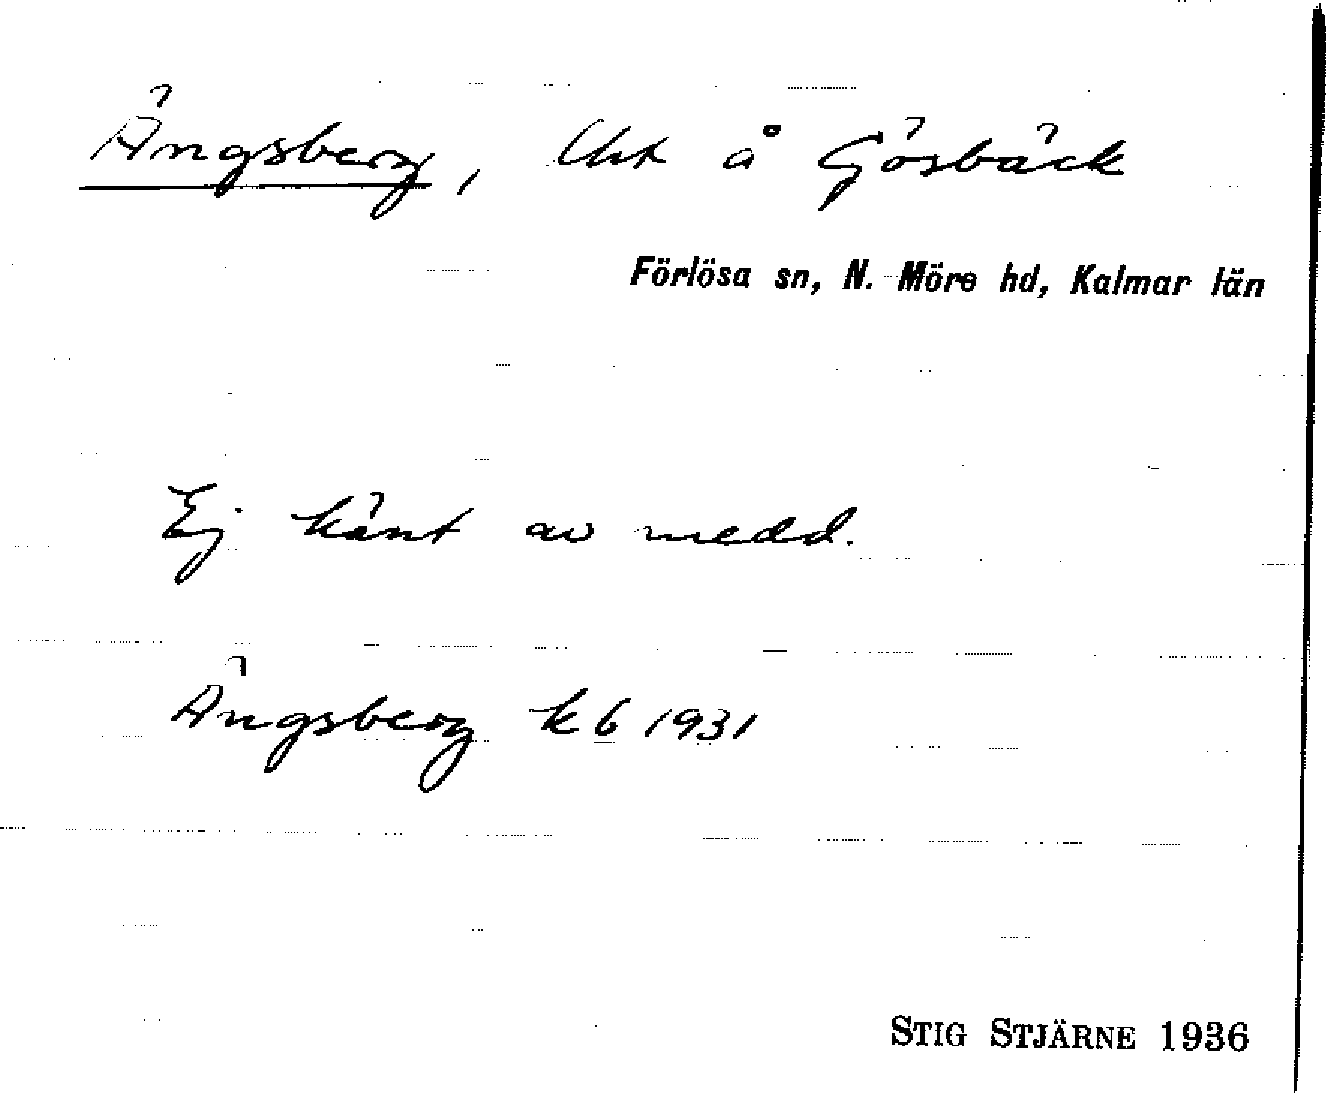 Ängsberg, lht å Gösbäck
Förlösa sn, N. Möre hd, Kalmar län
Ej känt av medd.
Ängsberg kb 1931
STIG STJÄRNE 1936